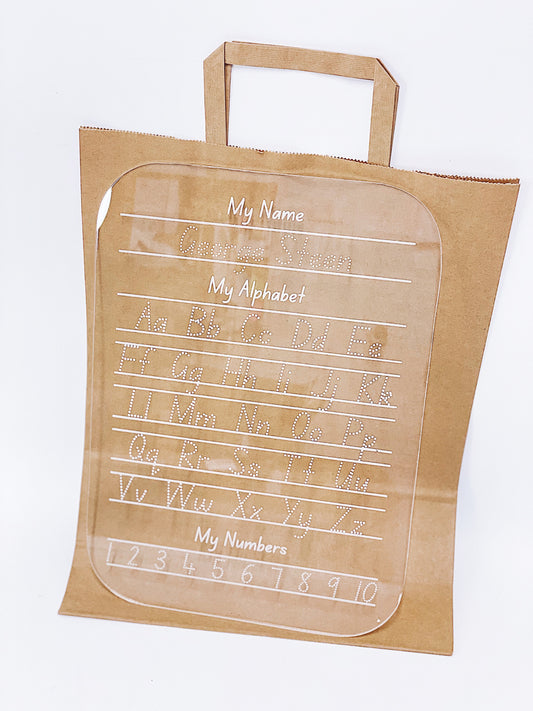 My Name
George Steen
My Alphabet
Aa Bb Cc Dd Ee
Ff Gg Hh Ii Jj Kk
Ll Mm Nn Oo Pp
Qq Rr Ss Tt Uu
Vv Ww Xx Yy Zz
My Numbers
1 2 3 4 5 6 7 8 9 10